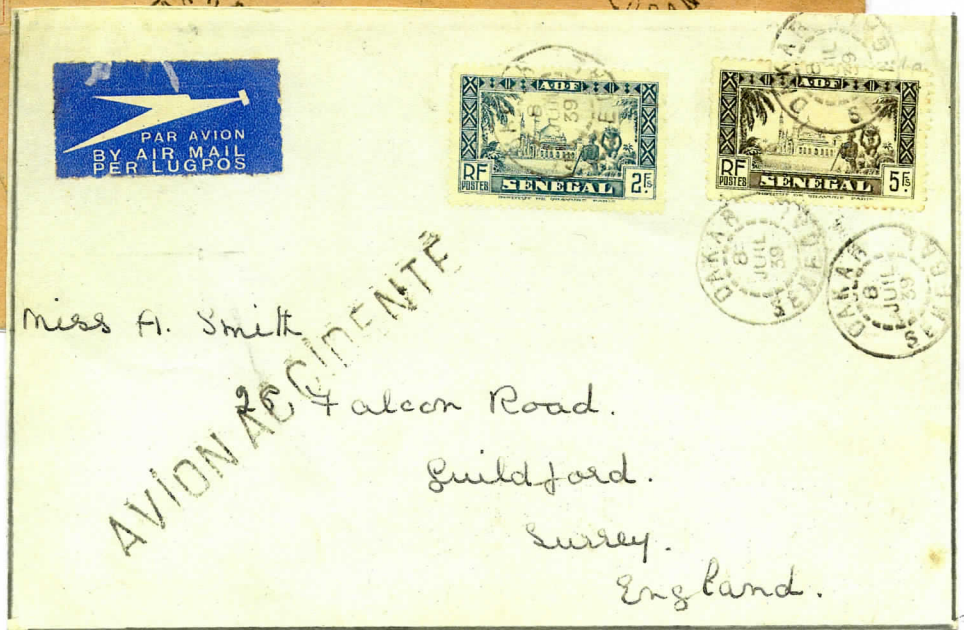 PAR AVION
BY AIR MAIL
PER LUGPOS
AOF
RF
POSTES
SENEGAL
2Fs
AOF
RF
POSTES
SENEGAL
5Fs
DAKAR
8
JUIL
39
SENEGAL
DAKAR
8
JUIL
39
SENEGAL
DAKAR
8
JUIL
39
SENEGAL
8
JUIL
39
AVION ACCIDENTÉ
Miss A. Smith
Falcon Road.
Guildford.
Surrey.
England.